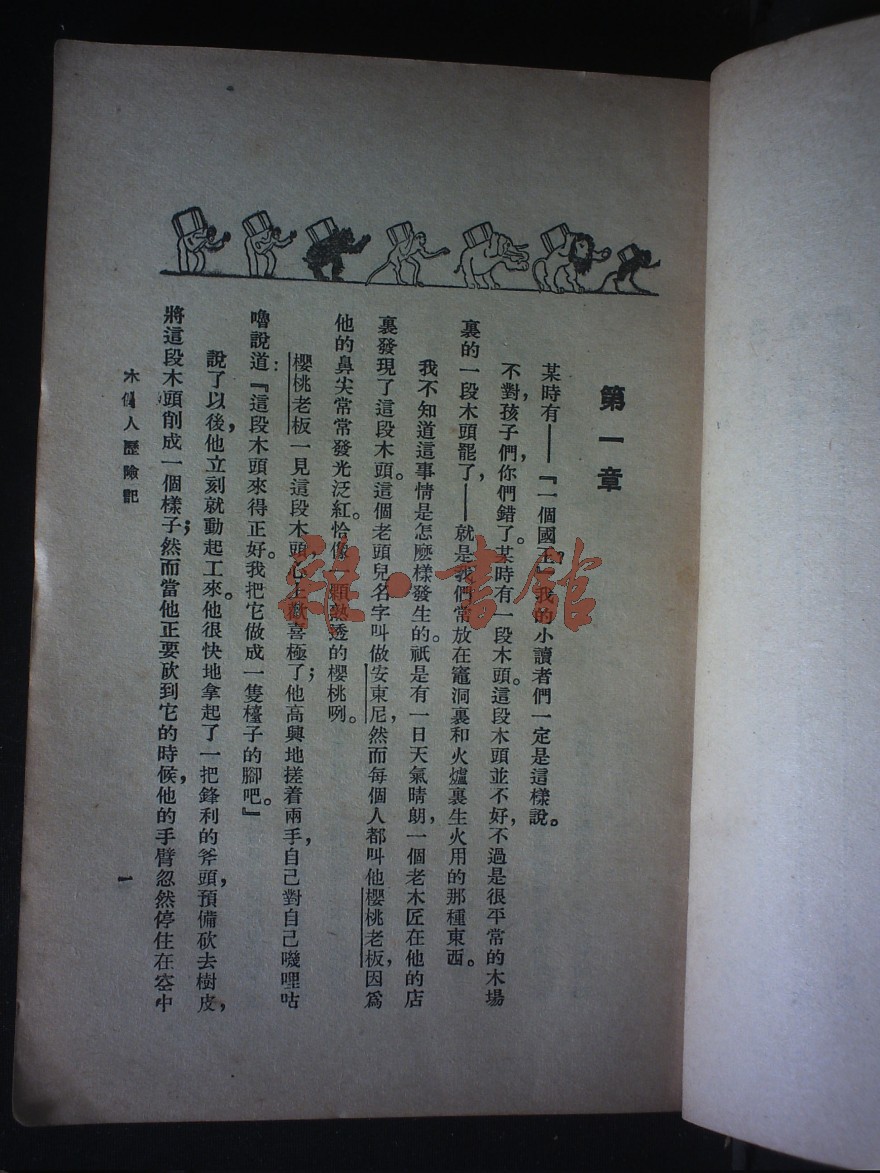 第一章
某時有——『一個國王』我的小讀者們一定是這樣說。
不對，孩子們，你們錯了。某時有一段木頭。這段木頭並不好，不過是很平常的木場
裏的一段木頭罷了，——就是我們常放在竈洞裏和火爐裏生火用的那種東西。
我不知道這事情是怎麽樣發生的。祇是有一日天氣晴朗，一個老木匠在他的店
裏發現了這段木頭。這個老頭兒名字叫做安東尼，然而每個人都叫他櫻桃老板，因爲
他的鼻尖常常發光泛紅。恰像一顆熟透的櫻桃咧。
櫻桃老板一見這段木頭，心上歡喜極了；他高興地搓着兩手，自己對自己嘰哩咕
嚕說道：『這段木頭來得正好。我把它做成一隻檯子的腳吧。』
說了以後，他立刻就動起工來。他很快地拿起了一把鋒利的斧頭，預備砍去樹皮，
將這段木頭削成一個樣子；然而當他正要砍到它的時候，他的手臂忽然停住在空中
木偶人歷險記
一
雜·書館